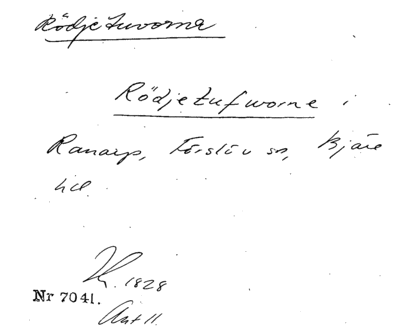 Rödjetuvorna
Rödjetufworne i
Ranarp, Förslöv sn, Bjäre
hd
1828
Nr 7041.
Akt 11.